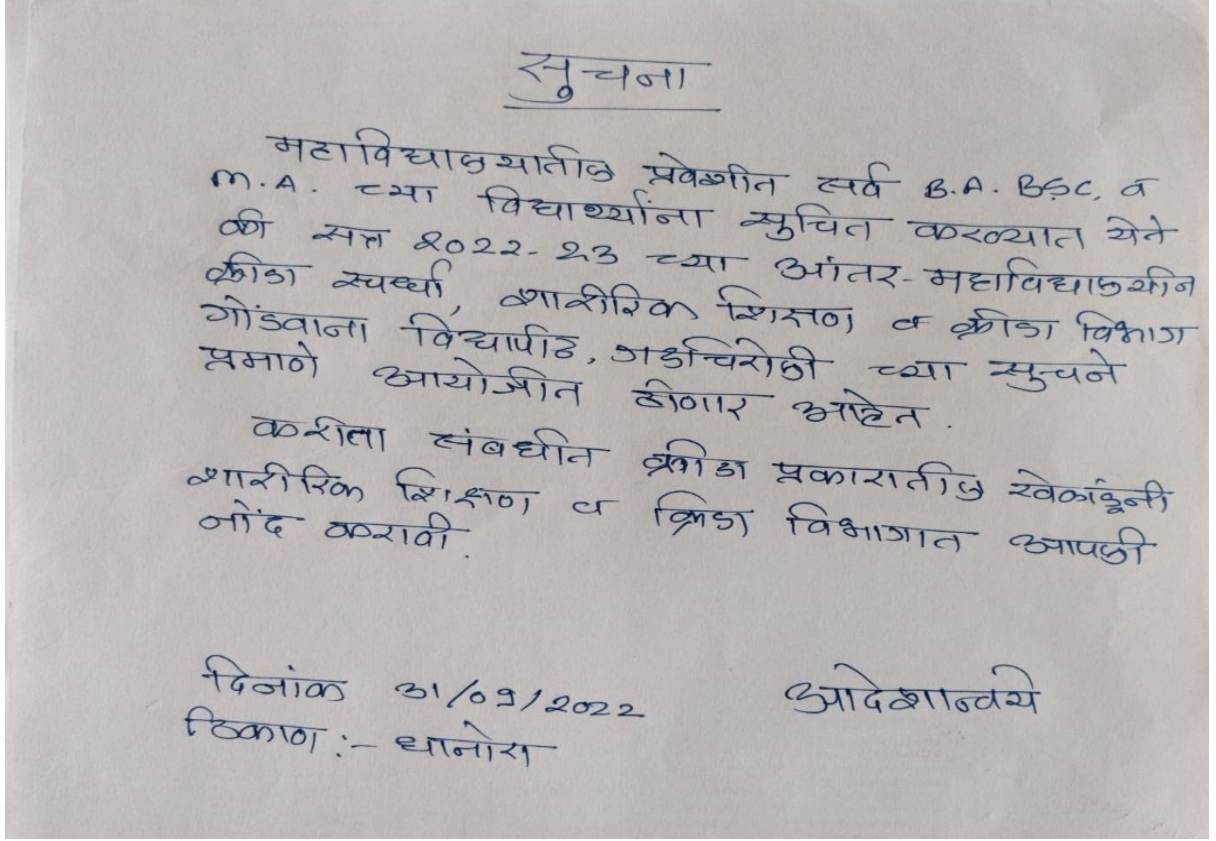 सुचना
महाविद्यालयातील प्रवेशीत सर्व B.A. BSC, व
M.A. च्या विद्यार्थ्यांना सुचित करण्यात येते
की सत्र 2022-23 च्या आंतर-महाविद्यालयीन
क्रीडा स्पर्धा, शारीरिक शिक्षण व क्रीडा विभाग
गोंडवाना विद्यापीठ, गडचिरोली च्या सुचने
प्रमाणे आयोजीत होणार आहेत.
करीता संबधीत क्रीडा प्रकारातील खेळांडूनी
शारीरिक शिक्षण व क्रिडा विभागात आपली
नोंद करावी.
दिनांक 31/09/2022 आदेशान्वये
ठिकाण :- धानोरा